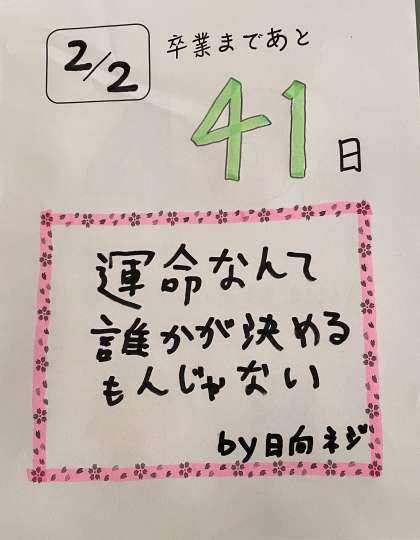 2/2
卒業まであと
41日
運命なんて
誰かが決める
もんじゃない
by日向ネジ